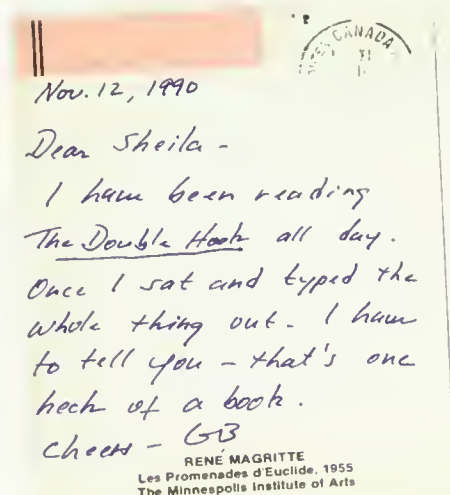 CANADA
Nov. 12, 1990
Dear Sheila -
I have been reading
The Double Hook all day.
Once I sat and typed the
whole thing out. I have
to tell you - that's one
heck of a book.
Cheers - GB
RENÉ MAGRITTE
Les Promenades d'Euclide, 1955
The Minnespolis Institute of Arts